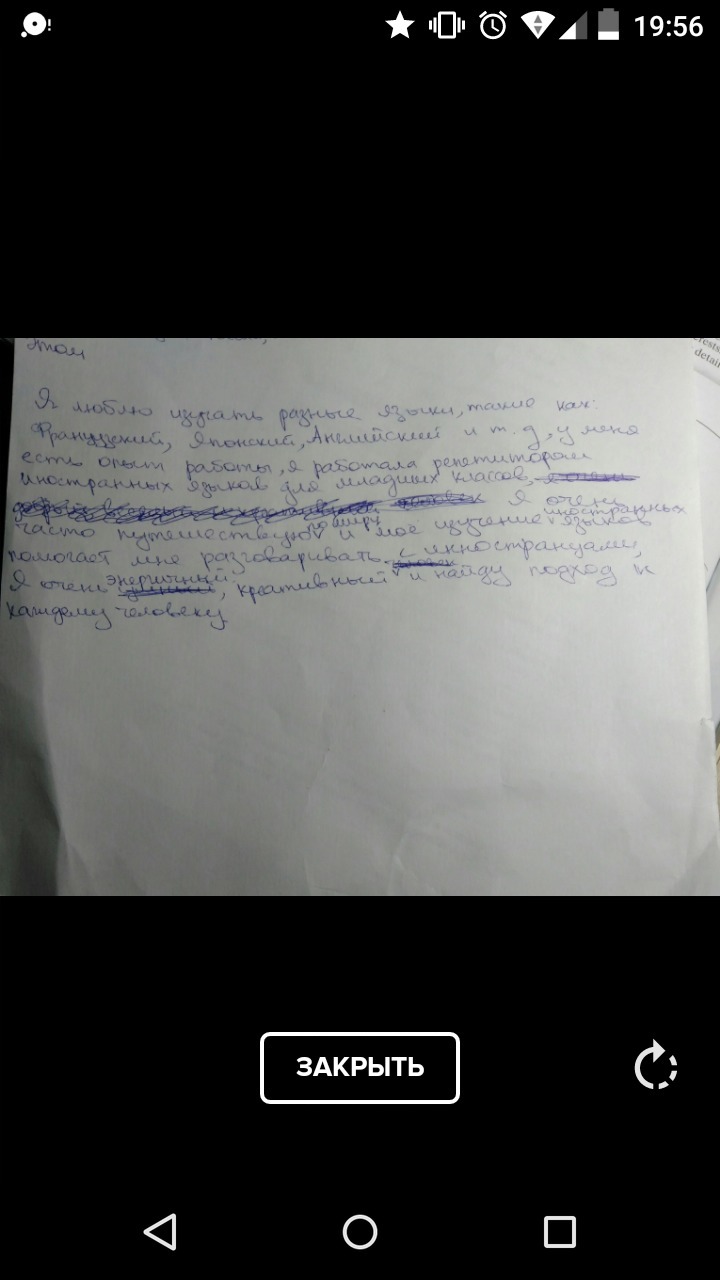 19:56
этом
Я люблю изучать разные языки, такие как:
Французский, Японский, Английский и т.д, у меня
есть опыт работы, я работала репетитором
иностранных языков для младших классов, я очень
человек Я очень
часто путешествую по миру и моё изучение иностранных языков
помогает мне разговаривать с инностранцами,
Я очень энергичный, креативный человек и найду подход к
каждому человеку
erests
detai
ЗАКРЫТЬ